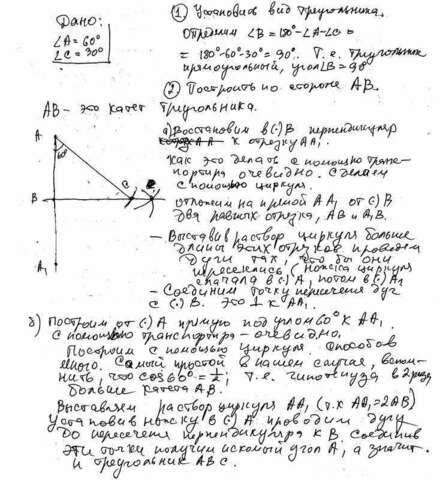 Дано:
∠A = 60°
∠C = 30°
① Установим вид треугольника.
Определим ∠B = 180° - ∠A - ∠C =
= 180° - 60° - 30° = 90°. Т.е. треугольник
прямоугольный, угол B = 90°
② Построить по стороне AB.
AB - это катет треугольника.
а) Восстановим в (·) B перпендикуляр
к отрезку AA₁.
Как это делать с помощью транс-
портира очевидно. Сделаем
с помощью циркуля.
Отложим на прямой AA₁ от (·) B
два равных отрезка, AB и A₁B.
- Выставив раствор циркуля больше
длины этих отрезков проведем
дуги так, что бы они
пересеклись (ножка циркуля
сначала в (·) A, потом в (·) A₁
- Соединим точку пересечения дуг
с (·) B. Это ⊥ к AA₁.
A
60°
B
C
A₁
б) Построим от (·) A прямую под углом 60° к AA₁
с помощью транспортира - очевидно.
Построим с помощью циркуля. Способов
много. Самый простой в нашем случае, вспом-
нить, что cos 60° = ½, т.е. гипотенуза в 2 раза
больше катета AB.
Выставляем раствор циркуля AA₁ (т.к AA₁ = 2AB)
Установив ножку в (·) A проводим дугу
до пересечения перпендикуляра к B. Соединив
эти точки получим искомый угол A, а значит
и треугольник ABC.